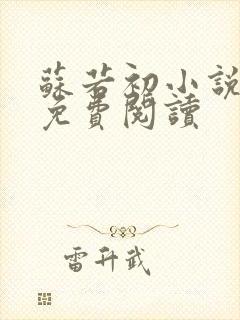 蘇若初小說
免費閱讀
雷升武